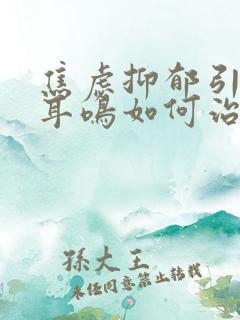 焦虑抑郁引
耳鸣如何治
孫大王
未经同意禁止转载